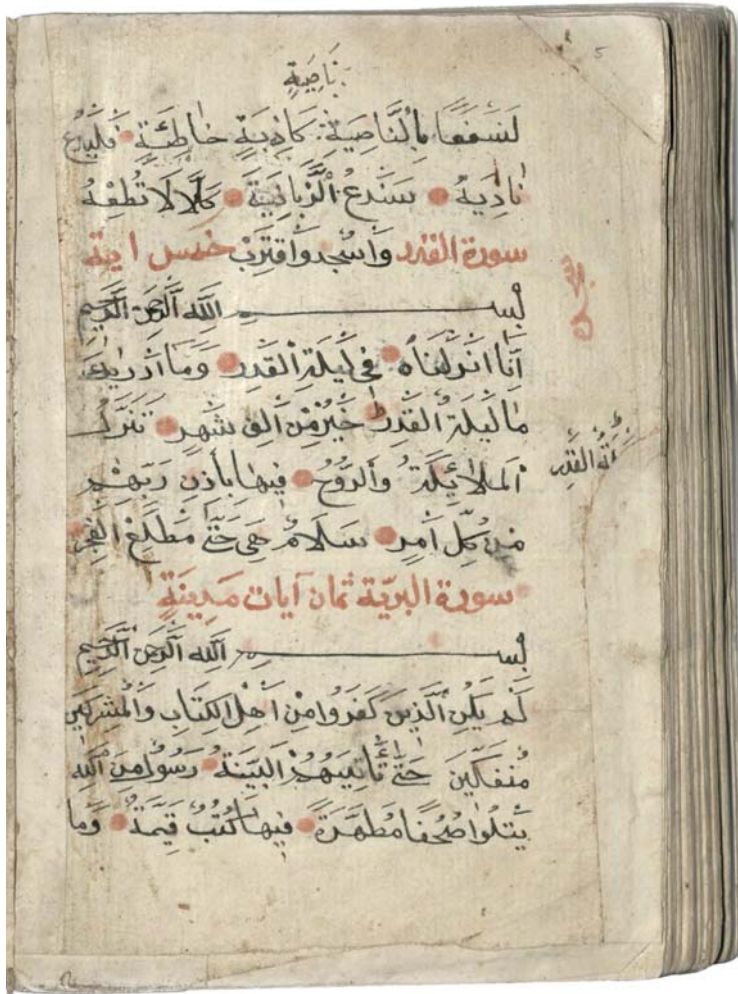 5
نَاصِيَةٍ
لَنَسْفَعًا بِالنَّاصِيَةِ كَاذِبَةٍ خَاطِئَةٍ فَلْيَدْعُ
نَادِيَهُ سَنَدْعُ الزَّبَانِيَةَ كَلَّا لَا تُطِعْهُ
سورة القدر وَاسْجُدْ وَاقْتَرِبْ خمس اية
بِسْمِ اللَّهِ الرَّحْمَنِ الرَّحِيمِ
اِنَّا اَنْزَلْنَاهُ فِي لَيْلَةِ الْقَدْرِ وَمَا اَدْرٰيكَ
مَا لَيْلَةُ الْقَدْرِ خَيْرٌ مِنْ اَلْفِ شَهْرٍ تَنَزَّلُ
لَيْلَةُ الْقَدْرِ
الْمَلَائِكَةُ وَالرُّوحُ فِيهَا بِاِذْنِ رَبِّهِمْ
مِنْ كُلِّ اَمْرٍ سَلَامٌ هِيَ حَتَّى مَطْلَعِ الْفَجْرِ
سورة البريّة ثمان آيات مَدِينَةٍ
بِسْمِ اللَّهِ الرَّحْمَنِ الرَّحِيمِ
لَمْ يَكُنِ الَّذِينَ كَفَرُوا مِنْ اَهْلِ الْكِتَابِ وَالْمُشْرِكِينَ
مُنْفَكِّينَ حَتَّى تَأْتِيَهُمُ الْبَيِّنَةُ رَسُولٌ مِنَ اللَّهِ
يَتْلُوا صُحُفًا مُطَهَّرَةً فِيهَا كُتُبٌ قَيِّمَةٌ وَمَا